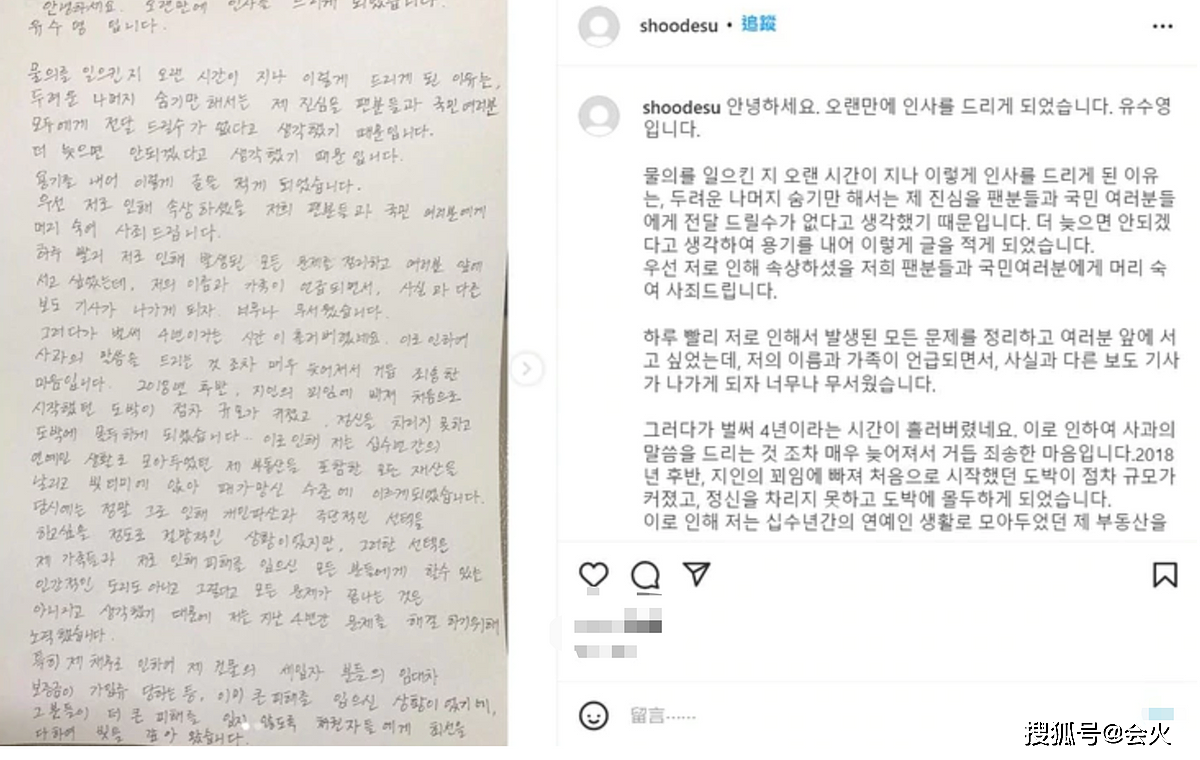 안녕하세요. 오랜만에 인사를 드리게 되었습니다.
유수영 입니다.
물의를 일으킨지 오랜 시간이 지나 이렇게 드리게 된 이유는,
두려운 나머지 숨기만 해서는 제 진심을 팬분들과 국민 여러분
모두에게 전달 드릴수가 없다고 생각했기 때문입니다.
더 늦으면 안되겠다고 생각했기 때문입니다.
용기를 내어 이렇게 글을 적게 되었습니다.
우선 저로 인해 속상하셨을 저희 팬분들과 국민 여러분에게
머리 숙여 사죄드립니다.
하루 빨리 저로 인해 발생된 모든 문제를 정리하고 여러분 앞에
서고 싶었는데, 저의 이름과 가족이 언급되면서, 사실과 다른
보도 기사가 나가게 되자 너무나 무서웠습니다.
그러다가 벌써 4년이라는 시간이 흘러버렸네요. 이로 인하여
사과의 말씀을 드리는 것 조차 매우 늦어져서 거듭 죄송한
마음입니다. 2018년 후반, 지인의 꾀임에 빠져 처음으로
시작했던 도박이 점차 규모가 커졌고, 정신을 차리지 못하고
도박에 몰두하게 되었습니다.. 이로 인해 저는 십수년간의
연예인 생활로 모아두었던 제 부동산을 포함한 모든 재산을
날리고 빚더미에 앉아 패가망신 수준에 이르게되었습니다.
당시에는 정말 그로 인해 개인파산과 극단적인 선택을
하고싶을 정도로 절망적인 상황이었지만, 그러한 선택은
제 가족들과 저로 인해 피해를 입으신 모든 분들에게 할수 있는
인간적인 도리도 아니고 그렇다고 모든 문제가 끝나는 것은
아니라고 생각했기 때문에 저는 지난 4년간 문제를 해결하기위해
노력했습니다.
특히 제 채무로 인하여 제 건물의 세입자 분들의 임대차
보증금이 가압류 당하는 등, 이미 큰 피해를 입으신 상황이었기에,
그분들이 더 큰 피해를 입지 않도록 채권자들에게 최선을
다하여 빚을 갚아 왔습니다.
shoodesu • 追蹤
shoodesu 안녕하세요. 오랜만에 인사를 드리게 되었습니다. 유수영
입니다.
물의를 일으킨 지 오랜 시간이 지나 이렇게 인사를 드리게 된 이유
는, 두려운 나머지 숨기만 해서는 제 진심을 팬분들과 국민 여러분들
에게 전달 드릴수가 없다고 생각했기 때문입니다. 더 늦으면 안되겠
다고 생각하여 용기를 내어 이렇게 글을 적게 되었습니다.
우선 저로 인해 속상하셨을 저희 팬분들과 국민여러분에게 머리 숙
여 사죄드립니다.
하루 빨리 저로 인해서 발생된 모든 문제를 정리하고 여러분 앞에 서
고 싶었는데, 저의 이름과 가족이 언급되면서, 사실과 다른 보도 기사
가 나가게 되자 너무나 무서웠습니다.
그러다가 벌써 4년이라는 시간이 흘러버렸네요. 이로 인하여 사과의
말씀을 드리는 것 조차 매우 늦어져서 거듭 죄송한 마음입니다.2018
년 후반, 지인의 꾀임에 빠져 처음으로 시작했던 도박이 점차 규모가
커졌고, 정신을 차리지 못하고 도박에 몰두하게 되었습니다.
이로 인해 저는 십수년간의 연예인 생활로 모아두었던 제 부동산을
留言......
搜狐号@会火